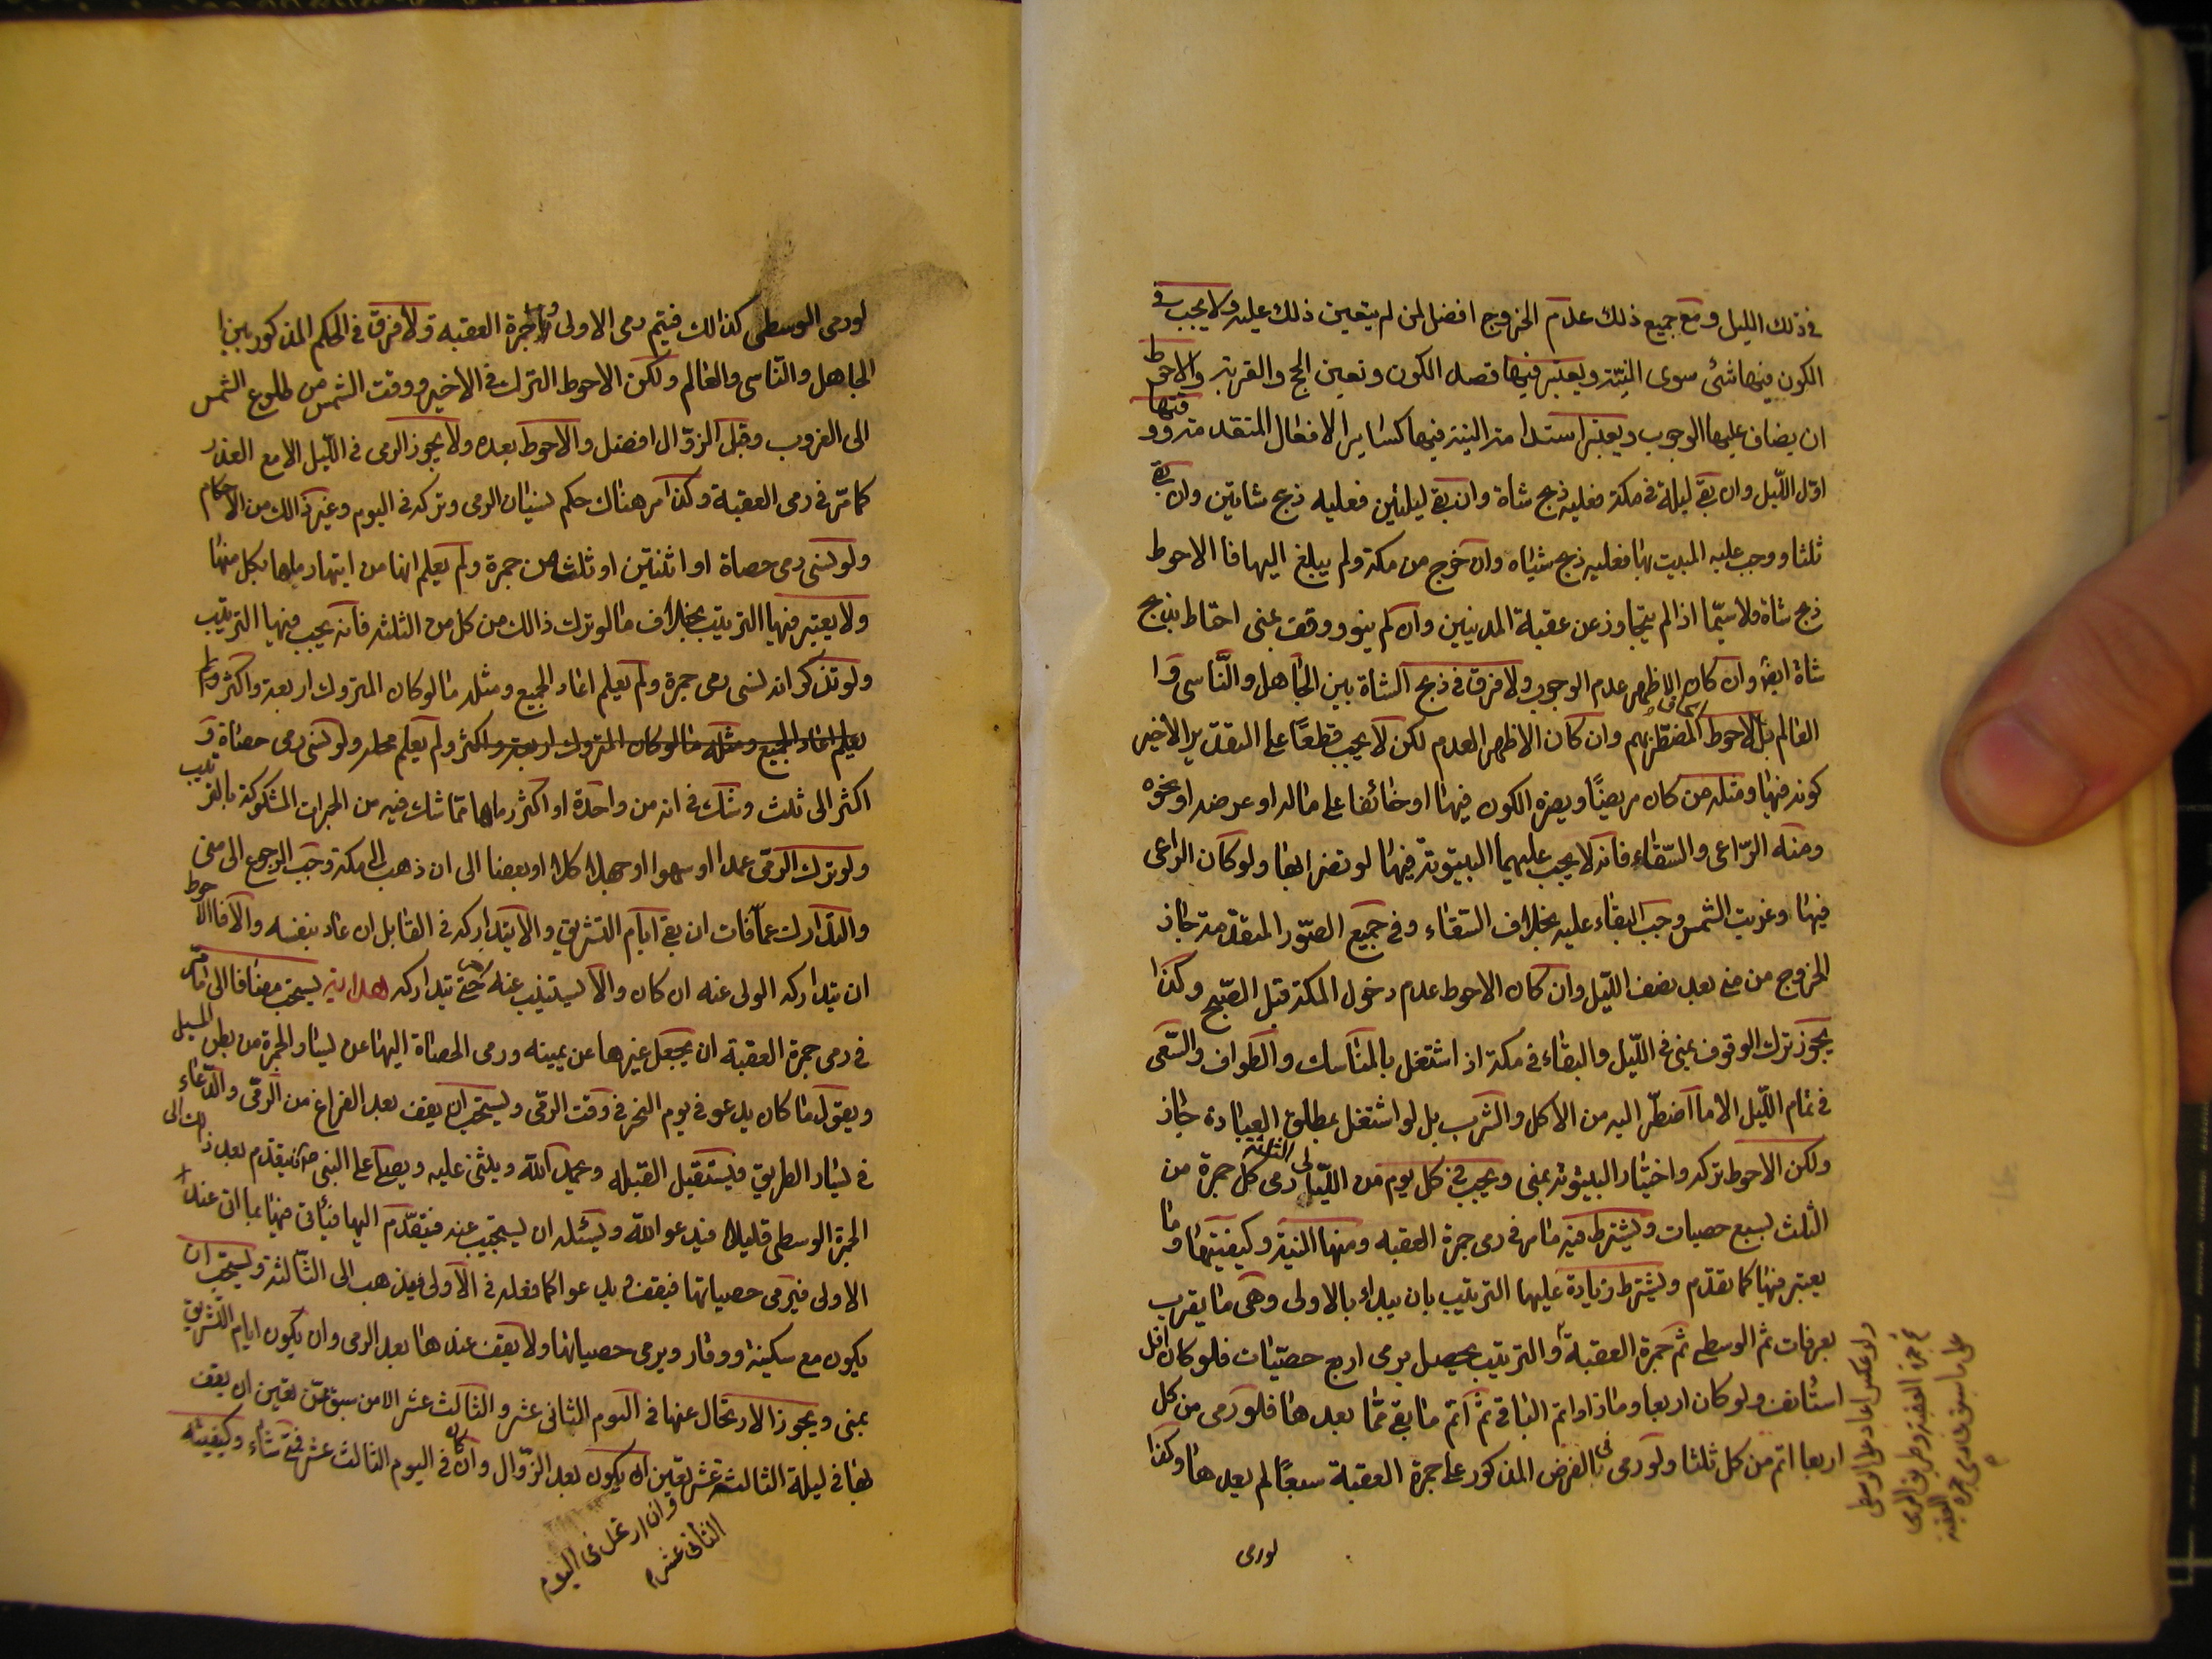 في ذلك الليل ومع جميع ذلك عدم الخروج افضل لمن لم يتعين ذلك عليه ولا يجب في
الكون فيها شئ سوى النيّة ويعتبر فيها قصد الكون وتعين الحج والقربة والاحوط
ان يضاف عليها الوجوب ويعتبر استدامة النية فيها كساير الافعال المتقدمة ووقتها
اوّل اللّيل وان بقى ليلة في مكة فعليه ذبح شاة وان بقى ليلتين فعليه ذبح شاتين وان بقى
ثلثا ووجب عليه المبيت بها فعليه ذبح شياه وان خرج من مكة ولم يبلغ اليها فالاحوط
ذبح شاة ولا سيّما اذا لم يتجاوز عن عقبة المدنيين وان لم ينو ووقف بمنى احتاط بذبح
شاة ايضا وان كان الاظهر عدم الوجوب ولا فرق في ذبح الشاة بين الجاهل والنّاسى وا
العالم بل الاحوط المضطر بهم وان كان الاظهر العدم لكن لا يجب قطعًا على التقدير الاخير
كونه فيها ومثله من كان مريضًا ويضره الكون فيها او خائفا على ماله او عرضه او نحوه
ومنه الرّاعى والسّقاء فانه لا يجب عليهما البيتوتة فيها لو تضرا بها ولو كان الراعى
فيها وغربت الشمس وجب البقاء عليه بخلاف السّقاء وفي جميع الصّور المتقدّمة جاز
الخروج من منى بعد نصف اللّيل وان كان الاحوط عدم دخول المكة قبل الصّبح وكذا
يجوز ترك الوقوف بمنى في اللّيل والبقاء في مكة اذا اشتغل بالمناسك والطواف والسّعى
في تمام اللّيل الا ما اضطّر اليه من الاكل والشرب بل لو اشتغل بمطلق العبادة جاز
ولكن الاحوط تركه واختيار البيتوتة بمنى ويجب في كل يوم من اللّيالى الثلثة رمى كل جمرة من
الثلث بسبع حصيات ويشترط فيه ما مر في رمى جمرة العقبه ومنها النية وكيفيتها وما
يعتبر فيها كما تقدّم ويشترط زيادة عليها الترتيب بان يبدا بالاولى وهى ما يقرب
بعرفات ثم الوسطى ثم جمرة العقبة والترتيب يحصل برمى اربع حصيّات فلو كان اقل
استانف ولو كان اربعا وما زاد اتم الباقى ثم اتم ما بقى ممّا بعدها فلو رمى من كل
اربعا اتم من كل ثلثا ولو رمى في الفرض المذكور على جمرة العقبة سبعًا لم يعدها وكذا
ولو عكس اعاد على الوسطى
ثم جمرة العقبة وطريق الرمى
على ما سبق في رمى جمرة
العقبة
لورمى
لورمى الوسطى كذالك فيتم رمى الاولى وجمرة العقبه ولا فرق في الحكم المذكور بين ا
الجاهل والنّاسى والعالم ولكن الاحوط الترك في الاخير ووقت الشمس من طلوع الشمس
الى الغروب وقبل الزوّال افضل والاحوط بعده ولا يجوز الرمى في اللّيل الا مع العذر
كما مرّ في رمى العقبة وكذا مر هناك حكم نسيان الرمى وتركه في اليوم وغير ذالك من الاحكام
ولو نسى رمى حصاة او اثنتين او ثلث من جمرة ولم يعلم انها من ايتها رماها بكل منها
ولا يعتبر فيها الترتيب بخلاف ما لو ترك ذالك من كل من الثلثه فانه يجب فيها الترتيب
ولو تذكر انه نسى رمى جمرة ولم يعلم اعاد الجميع ومثله ما لو كان المتروك اربعة واكثر ولم
يعلم اعاد الجميع ومثله ما لو كان المتروك اربعة واكثر ولم يعلم محله ولو نسى رمى حصاة و
اكثر الى ثلث وشك في انه من واحدة او اكثر رماها ممّا شك فيه من الجمرات المشكوكة بالترتيب
ولو ترك الرمى عمدا او سهوا او جهلا كلا او بعضا الى ان ذهب الى مكة وجب الرجوع الى منى
والتدارك عمّا فات ان بقى ايام التشريق والا يتداركه في القابل ان عاد بنفسه والا فالاحوط
ان يتداركه الولى عنه ان كان والا يستنيب عنه حتى يتداركه هداية يستحب مضافا الى ما مر
في رمى جمرة العقبة ان يجعل غيرها عن يمينه ورمى الحصاة اليها عن يسار الجمرة من بطن المسيل
ويقول ما كان يدعو في يوم النحر في وقت الرمى ويستحب ان يقف بعد الفراغ من الرمى والدّعاء
في يسار الطريق فيستقبل القبله ويحمد الله ويثنى عليه ويصلى على النبى ص ثم يتقدّم بعد ذلك الى
الجمرة الوسطى قليلا فيدعو الله ويسئله ان يستجيب عنه فيتقدّم اليها فيأتى فيها بما اتى عند
الاولى فيرمى حصياتها فيقف ويدعو كما فعله في الاولى فيذهب الى الثالثة ويستحب ان
يكون مع سكينة ووقار ويرمى حصياتها ولا يقف عندها بعد الرمى وان يكون ايام التشريق
بمنى ويجوز الارتحال عنها في اليوم الثانى عشر والثالث عشر الا من سبق ممّن تعين ان يقف
بها في ليلة الثالث عشر تعين ان يكون بعد الزّوال وان كان في اليوم الثالث عشر فمتى شاء وكيفيته
وان ارتحل في اليوم
الثانى عشر